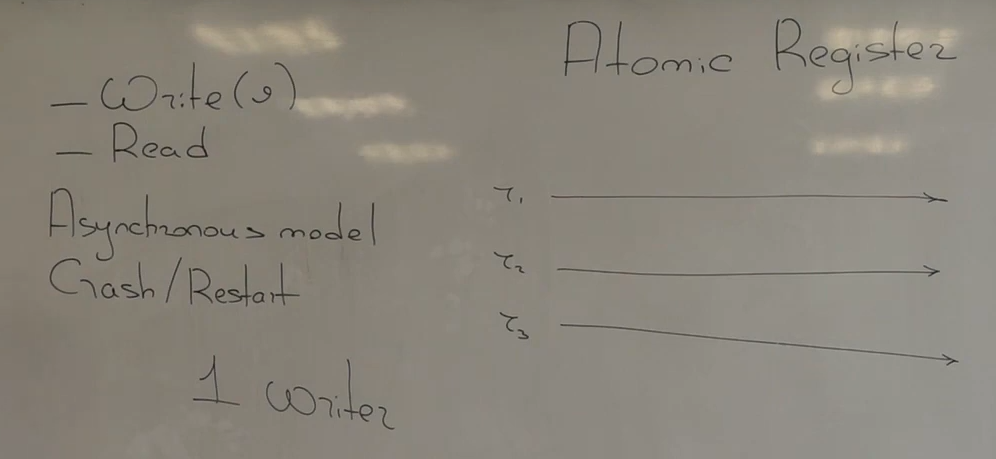 Atomic Register
– Write(v)
– Read
Asynchronous model
Crash/Restart
1 writer
r₁
r₂
r₃